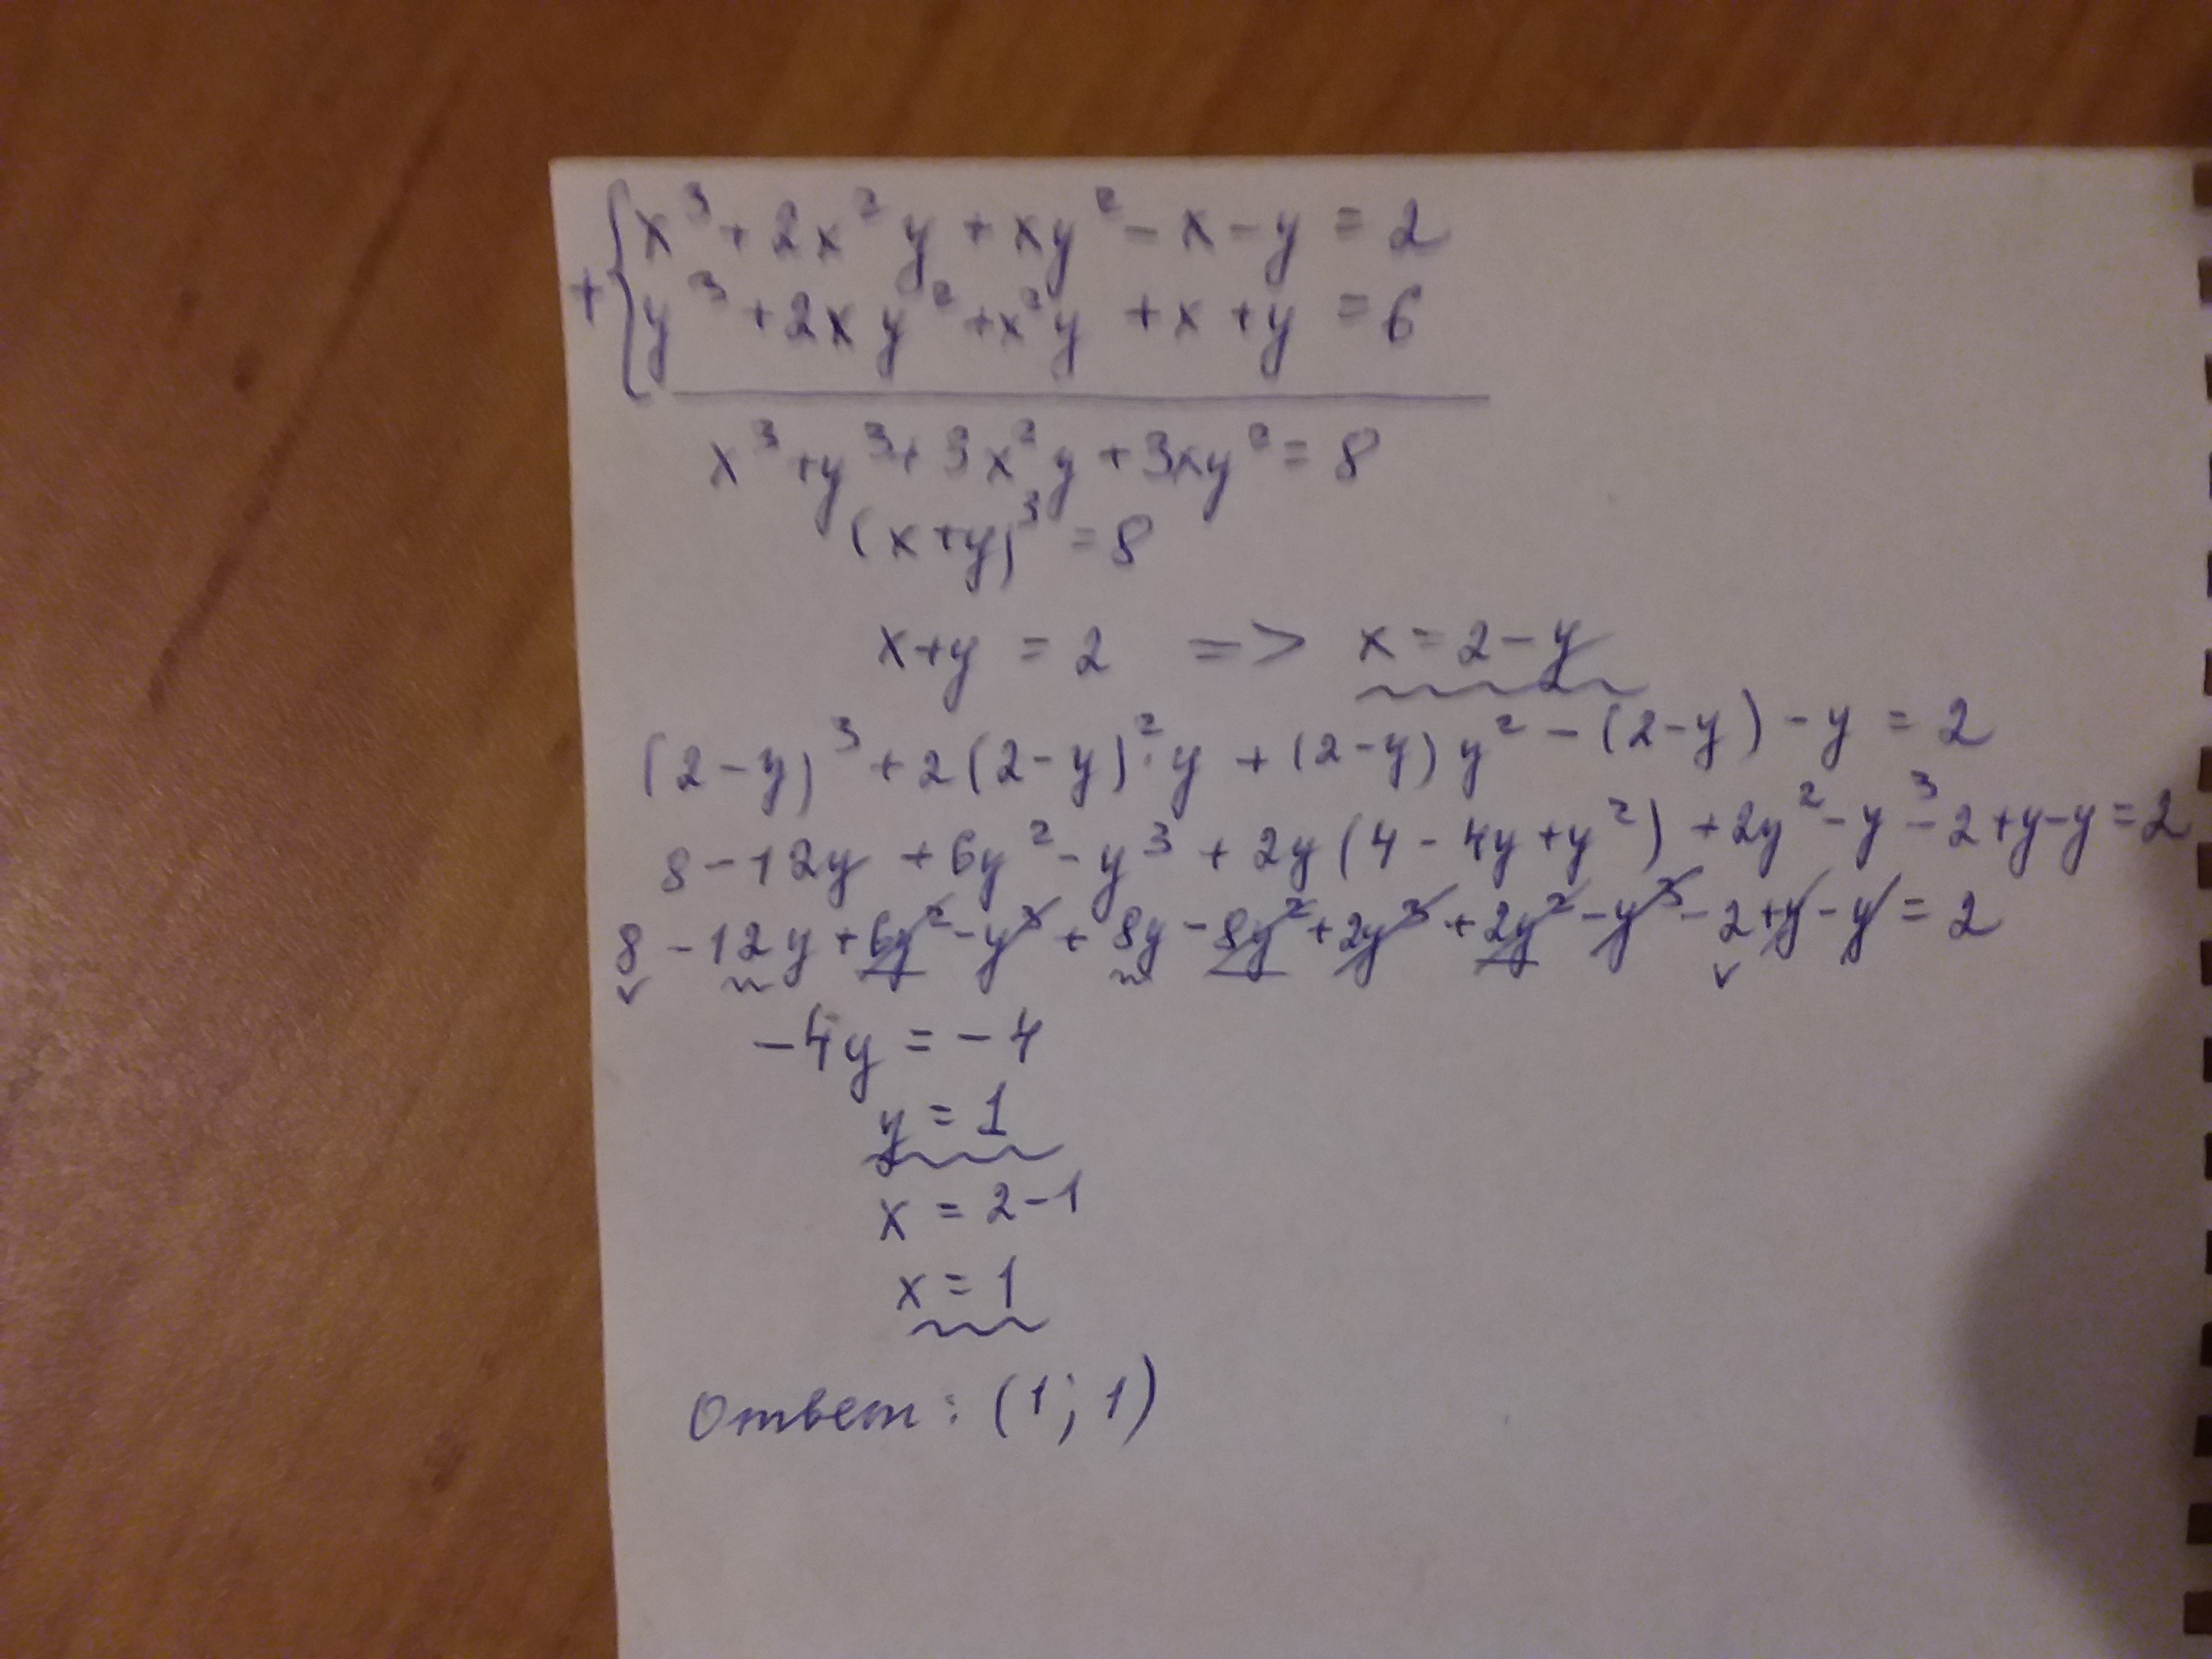 +{x³+2x²y+xy²-x-y=2
y³+2xy²+x²y+x+y=6
x³+y³+3x²y+3xy²=8
(x+y)³=8
x+y=2 => x=2-y
(2-y)³+2(2-y)²·y+(2-y)y²-(2-y)-y=2
8-12y+6y²-y³+2y(4-4y+y²)+2y²-y³-2+y-y=2
8-12y+6y²-y³+8y-8y²+2y³+2y²-y³-2+y-y=2
-4y=-4
y=1
x=2-1
x=1
Ответ: (1; 1)